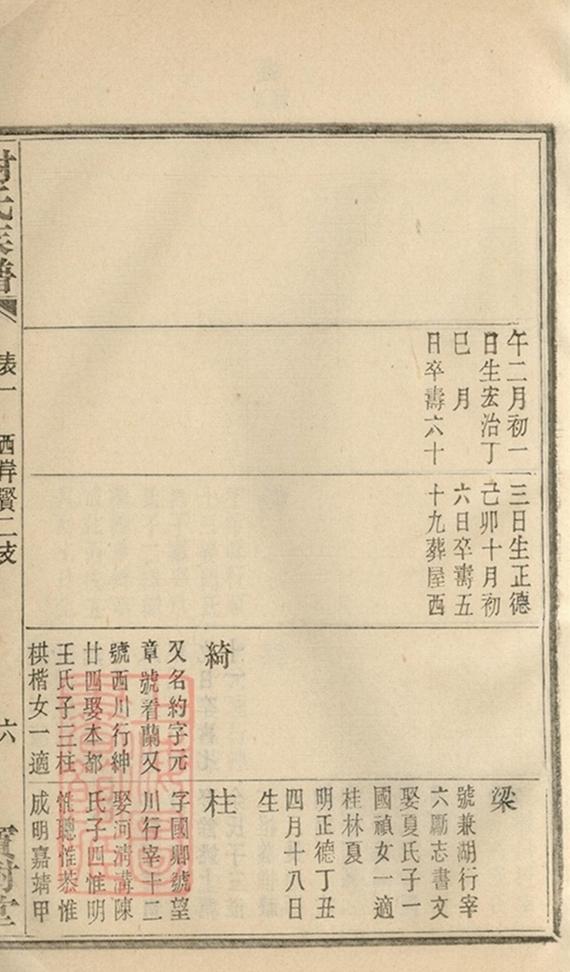 午二月初一
日生宏治丁
巳　月
日卒壽六十
三日生正德
己卯十月初
六日卒壽五
十九葬屋西
綺
又名約字元
章號看蘭又
號西川行紳
廿四娶本都
王氏子三柱
栱楷女一適
梁
號兼湖行宰
六勵志書文
娶夏氏子一
國禎女一適
桂林夏
明正德丁丑
四月十八日
生
柱
字國卿號望
川行宰十二
娶河淸溝陳
氏子四惟明
惟聰惟恭惟
成明嘉靖甲
氏族譜
表一
西岸賢二支
六
寶樹堂